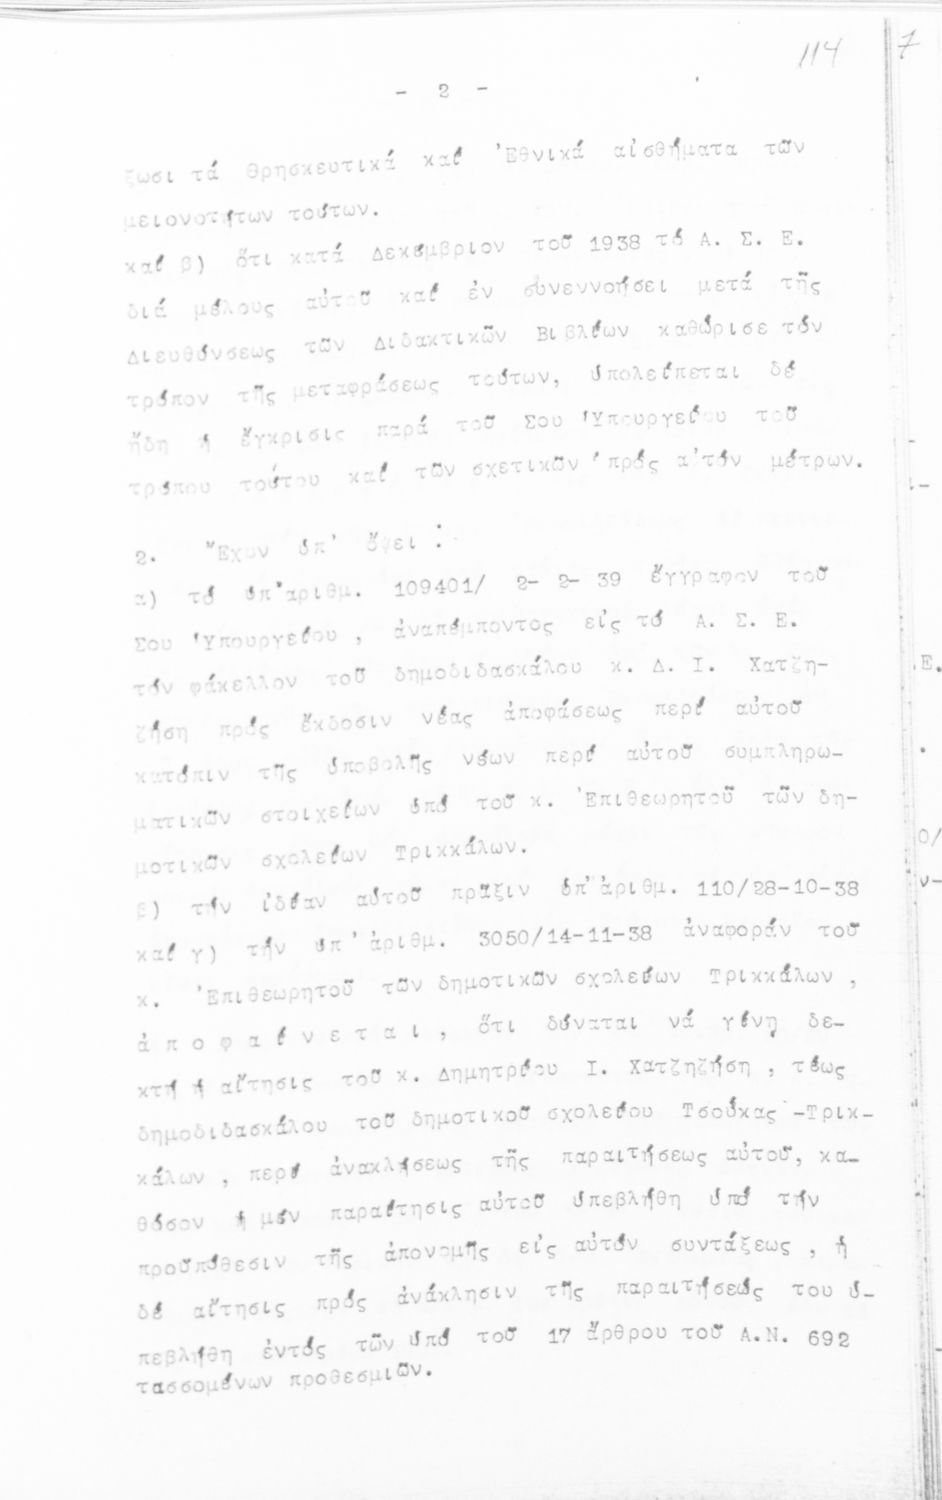 114
7
- 2 -
ζωσι τά θρησκευτικά καί Ἐθνικά αἰσθήματα τῶν
μειονοτήτων τούτων.
καί β) ὅτι κατά Δεκέμβριον τοῦ 1938 τό Α. Σ. Ε.
διά μέλους αὐτοῦ καί ἐν συνεννοήσει μετά τῆς
Διευθύνσεως τῶν Διδακτικῶν Βιβλίων καθώρισε τόν
τρόπον τῆς μεταφράσεως τούτων, ὑπολείπεται δέ
ἤδη ἡ ἔγκρισις παρά τοῦ Σου Ὑπουργείου τοῦ
τρόπου τούτου καί τῶν σχετικῶν πρός αὐτόν μέτρων.
2. Ἔχον ὑπ' ὄψει :
α) τό ὑπ'ἀριθμ. 109401/ 2- 2- 39 ἔγγραφον τοῦ
Σου Ὑπουργείου , ἀναπέμποντος εἰς τό Α. Σ. Ε.
τόν φάκελλον τοῦ δημοδιδασκάλου κ. Δ. Ι. Χατζη-
ζήση πρός ἔκδοσιν νέας ἀποφάσεως περί αὐτοῦ
κατόπιν τῆς ὑποβολῆς νέων περί αὐτοῦ συμπληρω-
ματικῶν στοιχείων ὑπό τοῦ κ. Ἐπιθεωρητοῦ τῶν δη-
μοτικῶν σχολείων Τρικκάλων.
β) τήν ἰδίαν αὐτοῦ πρᾶξιν ὑπ'ἀριθμ. 110/28-10-38
καί γ) τήν ὑπ'ἀριθμ. 3050/14-11-38 ἀναφοράν τοῦ
κ. Ἐπιθεωρητοῦ τῶν δημοτικῶν σχολείων Τρικκάλων ,
ἀ π ο φ α ί ν ε τ α ι , ὅτι δύναται νά γίνῃ δε-
κτή ἡ αἴτησις τοῦ κ. Δημητρίου Ι. Χατζηζήση , τέως
δημοδιδασκάλου τοῦ δημοτικοῦ σχολείου Τσούκας -Τρικ-
κάλων , περί ἀνακλήσεως τῆς παραιτήσεως αὐτοῦ, κα-
θόσον ἡ μέν παραίτησις αὐτοῦ ὑπεβλήθη ὑπό τήν
προϋπόθεσιν τῆς ἀπονομῆς εἰς αὐτόν συντάξεως , ἡ
δέ αἴτησις πρός ἀνάκλησιν τῆς παραιτήσεώς του ὑ-
πεβλήθη ἐντός τῶν ὑπό τοῦ 17 ἄρθρου τοῦ Α.Ν. 692
τασσομένων προθεσμιῶν.